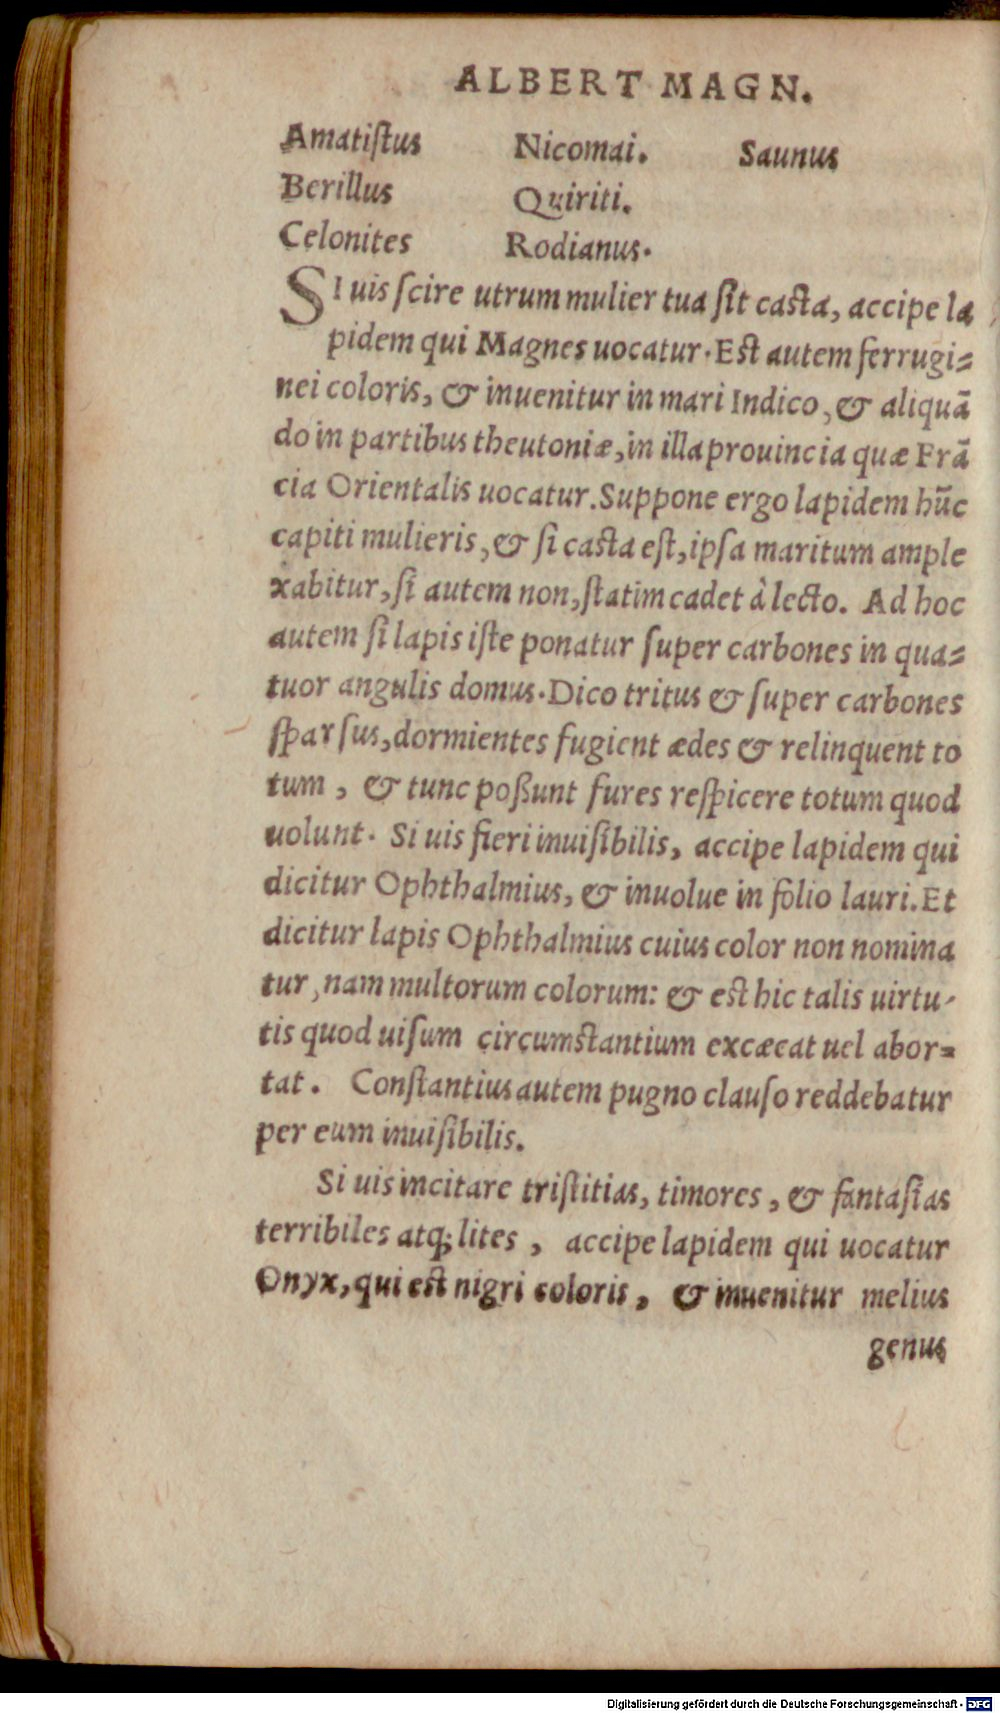 ALBERT MAGN.
Amatiſtus Nicomai. Saunus
Berillus Quiriti.
Celonites Rodianus.
SI uis ſcire utrum mulier tua ſit caſta, accipe la
pidem qui Magnes uocatur. Eſt autem ferrugi=
nei coloris, & inuenitur in mari Indico, & aliquā
do in partibus theutoniæ, in illa prouincia quæ Frā
cia Orientalis uocatur. Suppone ergo lapidem hūc
capiti mulieris, & ſi caſta eſt, ipſa maritum ample
xabitur, ſi autem non, ſtatim cadet à lecto. Ad hoc
autem ſi lapis iſte ponatur ſuper carbones in qua=
tuor angulis domus. Dico tritus & ſuper carbones
ſparſus, dormientes fugient ædes & relinquent to
tum, & tunc poßunt fures reſpicere totum quod
uolunt. Si uis fieri inuiſibilis, accipe lapidem qui
dicitur Ophthalmius, & inuolue in folio lauri. Et
dicitur lapis Ophthalmius cuius color non nomina
tur, nam multorum colorum: & eſt hic talis uirtu-
tis quod uiſum circumſtantium excæcat uel abor=
tat. Conſtantius autem pugno clauſo reddebatur
per eum inuiſibilis.
Si uis incitare triſtitias, timores, & fantaſias
terribiles atq; lites, accipe lapidem qui uocatur
Onyx, qui eſt nigri coloris, & inuenitur melius
genus
Digitalisierung gefördert durch die Deutsche Forschungsgemeinschaft - DFG